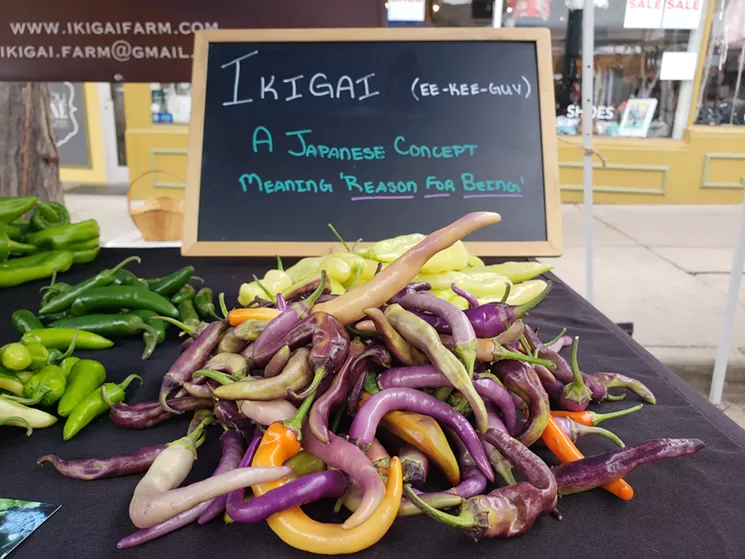 WWW.IKIGAIFARM.COM
IKIGAI.FARM@GMAIL.
IKIGAI (EE-KEE-GUY)
A JAPANESE CONCEPT
MEANING 'REASON FOR BEING'
SALE SALE
SHOES